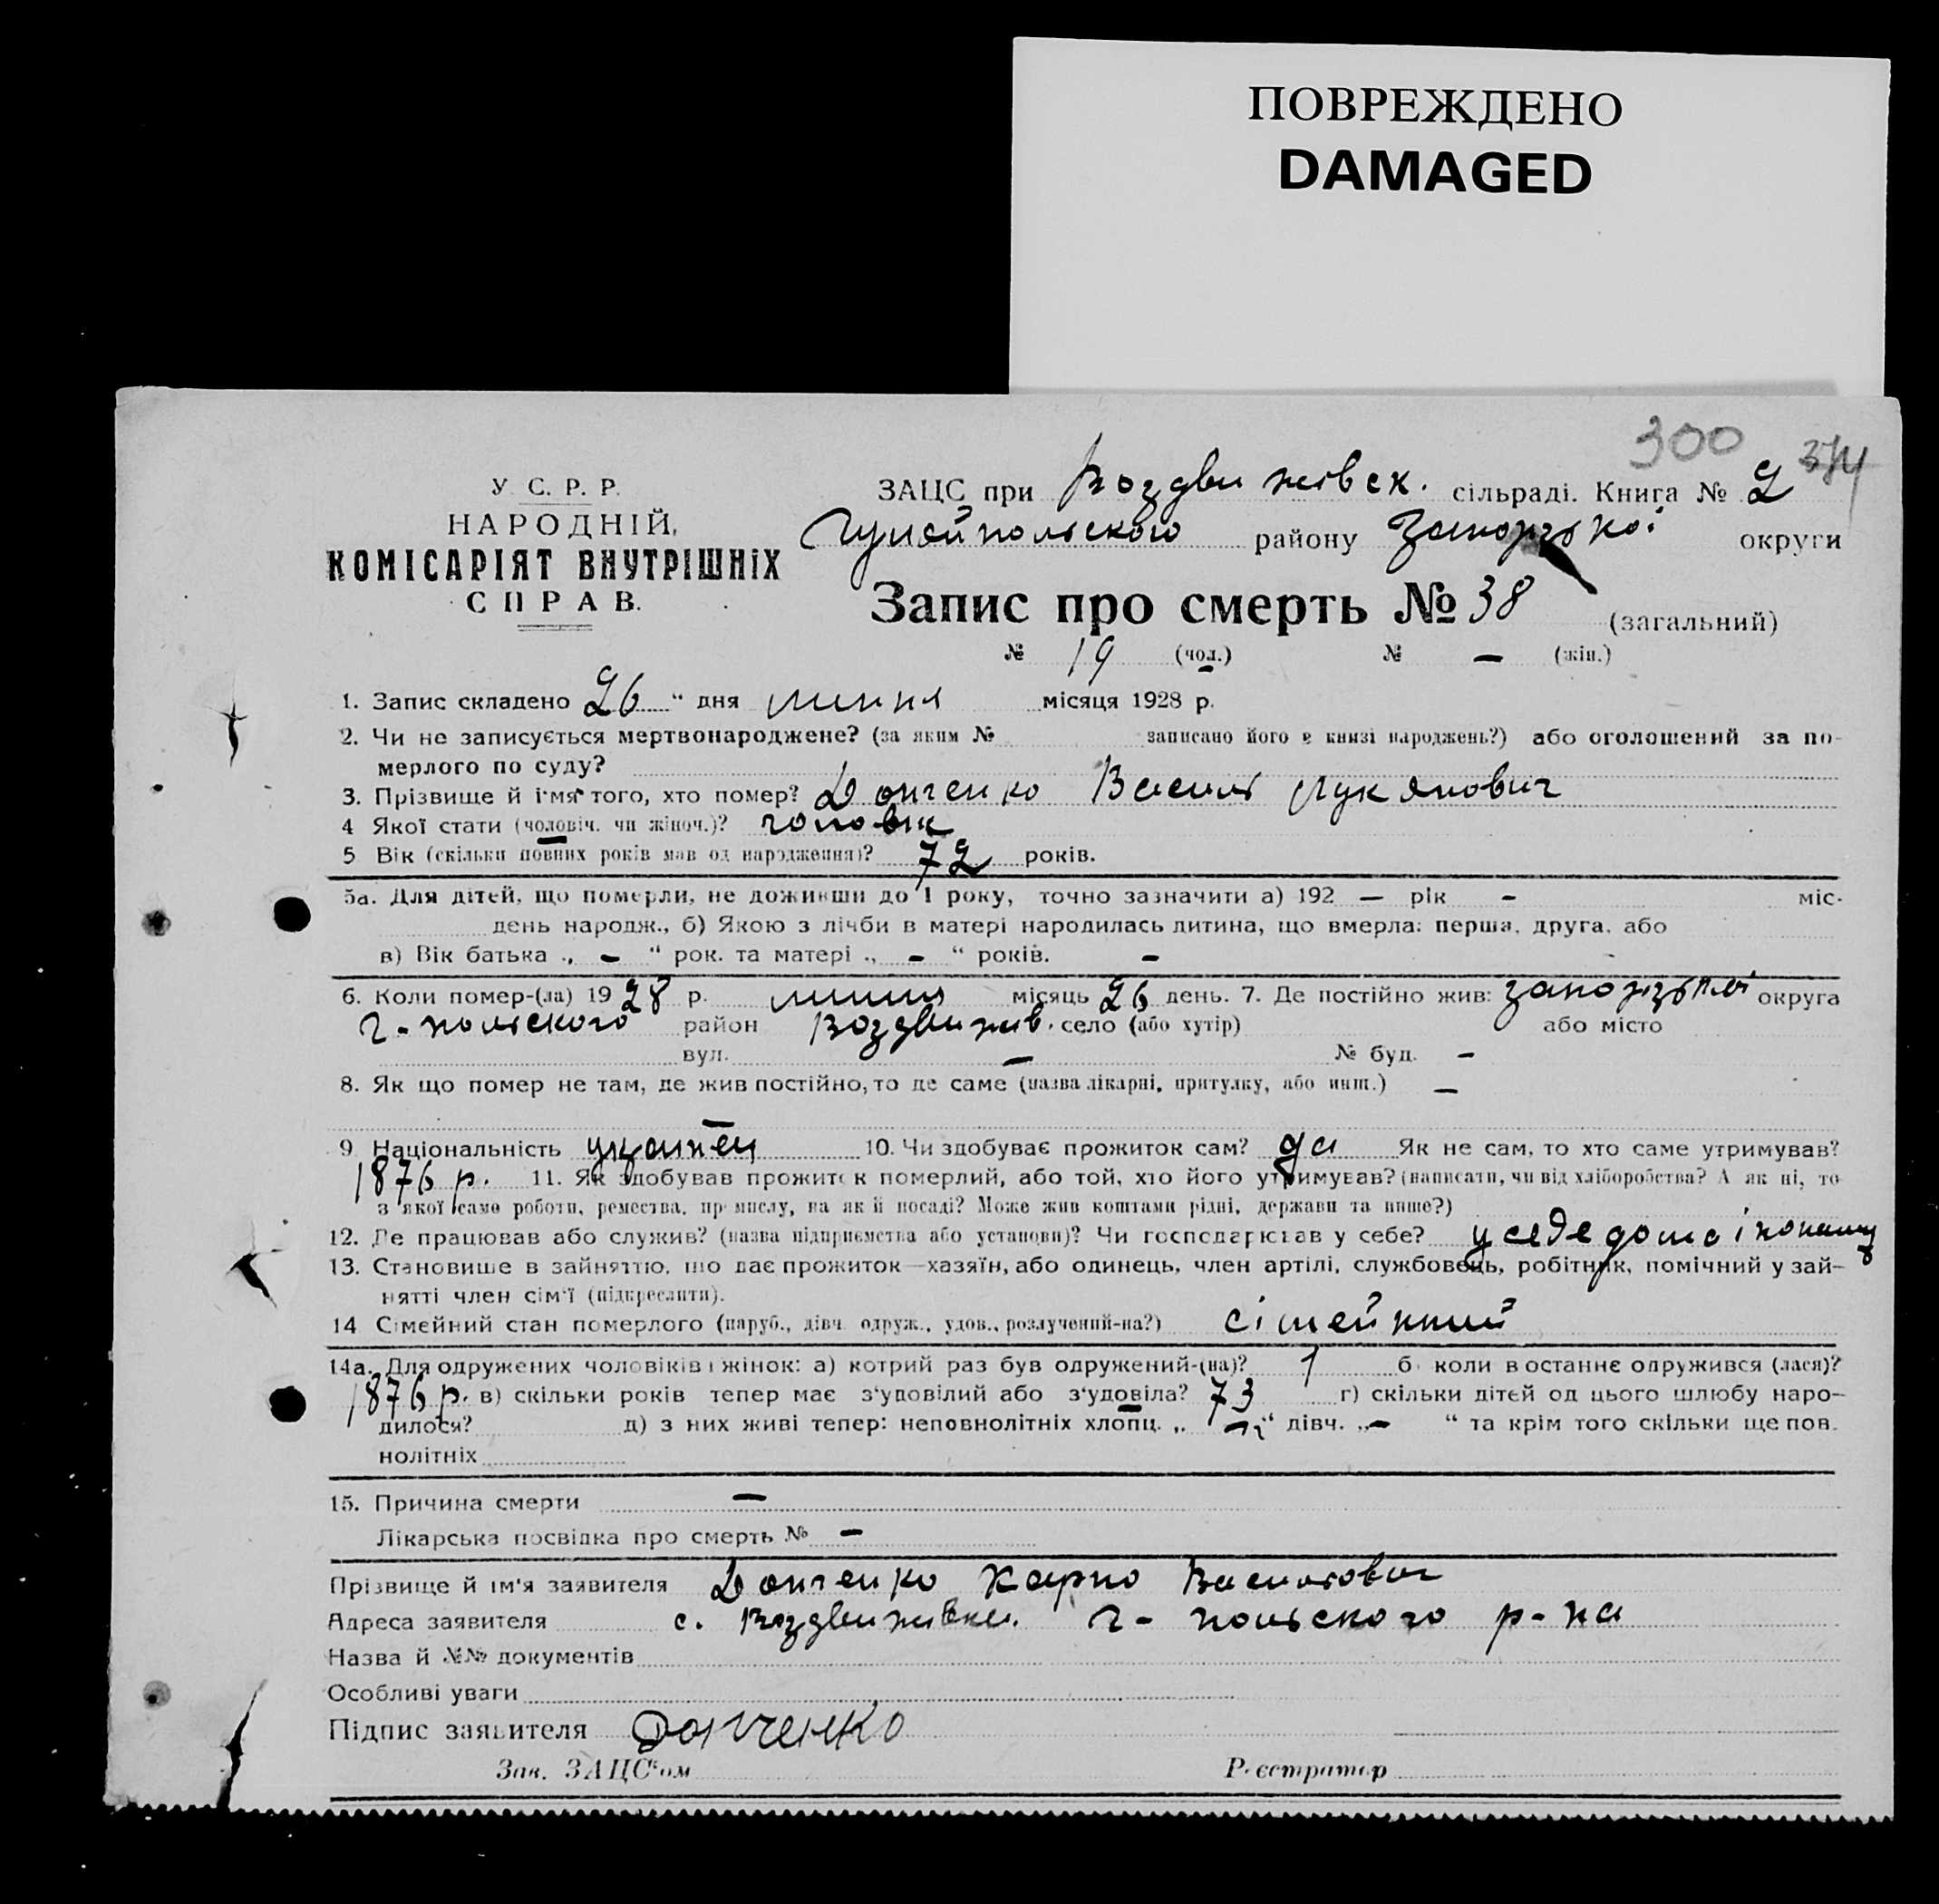 ПОВРЕЖДЕНО
DAMAGED
300
У. С. Р. Р.
НАРОДНІЙ
КОМІСАРІЯТ ВНУТРІШНІХ
СПРАВ.
ЗАЦС при Воздвижівск. сільраді. Книга № 2
Гуляйпольского району Запорізької округи
Запис про смерть № 38 (загальний)
№ 19 (чол.) № — (жін.)
1. Запис складено 26 " дня липня місяця 1928 р.
2. Чи не записується мертвонароджене? (за яким № записано його в книзі народжень?) або оголошений за по-
мерлого по суду?
3. Прізвище й ім'я того, хто помер? Донченко Василь Лукянович
4 Якої статі (чоловіч. чи жіноч.)? чоловік
5 Вік (скільки повних років мав од народження)? 72 років.
5а. Для дітей, що померли, не доживши до 1 року, точно зазначити а) 192 — рік - міс-
день народж., б) Якою з лічби в матері народилась дитина, що вмерла: перша, друга, або
в) Вік батька „ - " рок. та матері „ - " років. -
6. Коли помер-(ла) 1928 р. липня місяць 26 день. 7. Де постійно жив: Запорізької округа
г-польского район Воздвижів. село (або хутір) або місто
вул. — № буд. -
8. Як що помер не там, де жив постійно, то де саме (назва лікарні, притулку, або инш.) —
—
9 Національність 10. Чи здобуває прожиток сам? да Як не сам, то хто саме утримував?
1876 р. 11. Як здобував прожиток померлий, або той, хто його утримував? (написати, чи від хліборобства? А як ні, то
з якої саме роботи, ремества, промислу, на якій посаді? Може жив коштами рідні, держави та инше?)
12. Де працював або служив? (назва підприємства або установи)? Чи господарював у себе? у себе дома
13. Становище в зайняттю, що дає прожиток—хазяїн, або одинець, член артілі, службовець, робітник, помічний у зай-
нятті член сім'ї (підкреслити).
14 Сімейний стан померлого (паруб., дівч. одруж., удов., розлучений-на?) сімейний
14а. Для одружених чоловіків і жінок: а) котрий раз був одружений-(на)? 1 б) коли востаннє одружився (лася)?
1876 р. в) скільки років тепер має з'удовілий або з'удовіла? 73 г) скільки дітей од цього шлюбу наро-
дилося? д) з них живі тепер: неповнолітніх хлопц. „ " дівч. „- " та крім того скільки ще пов.
нолітніх
15. Причина смерти —
Лікарська посвідка про смерть № -
Прізвище й ім'я заявителя Донченко Карпо Васильович
Адреса заявителя с. Воздвижівки. г-польского р-на
Назва й №№ документів
Особливі уваги
Підпис заявителя Донченко
Зав. ЗАЦС'ом Реєстратор